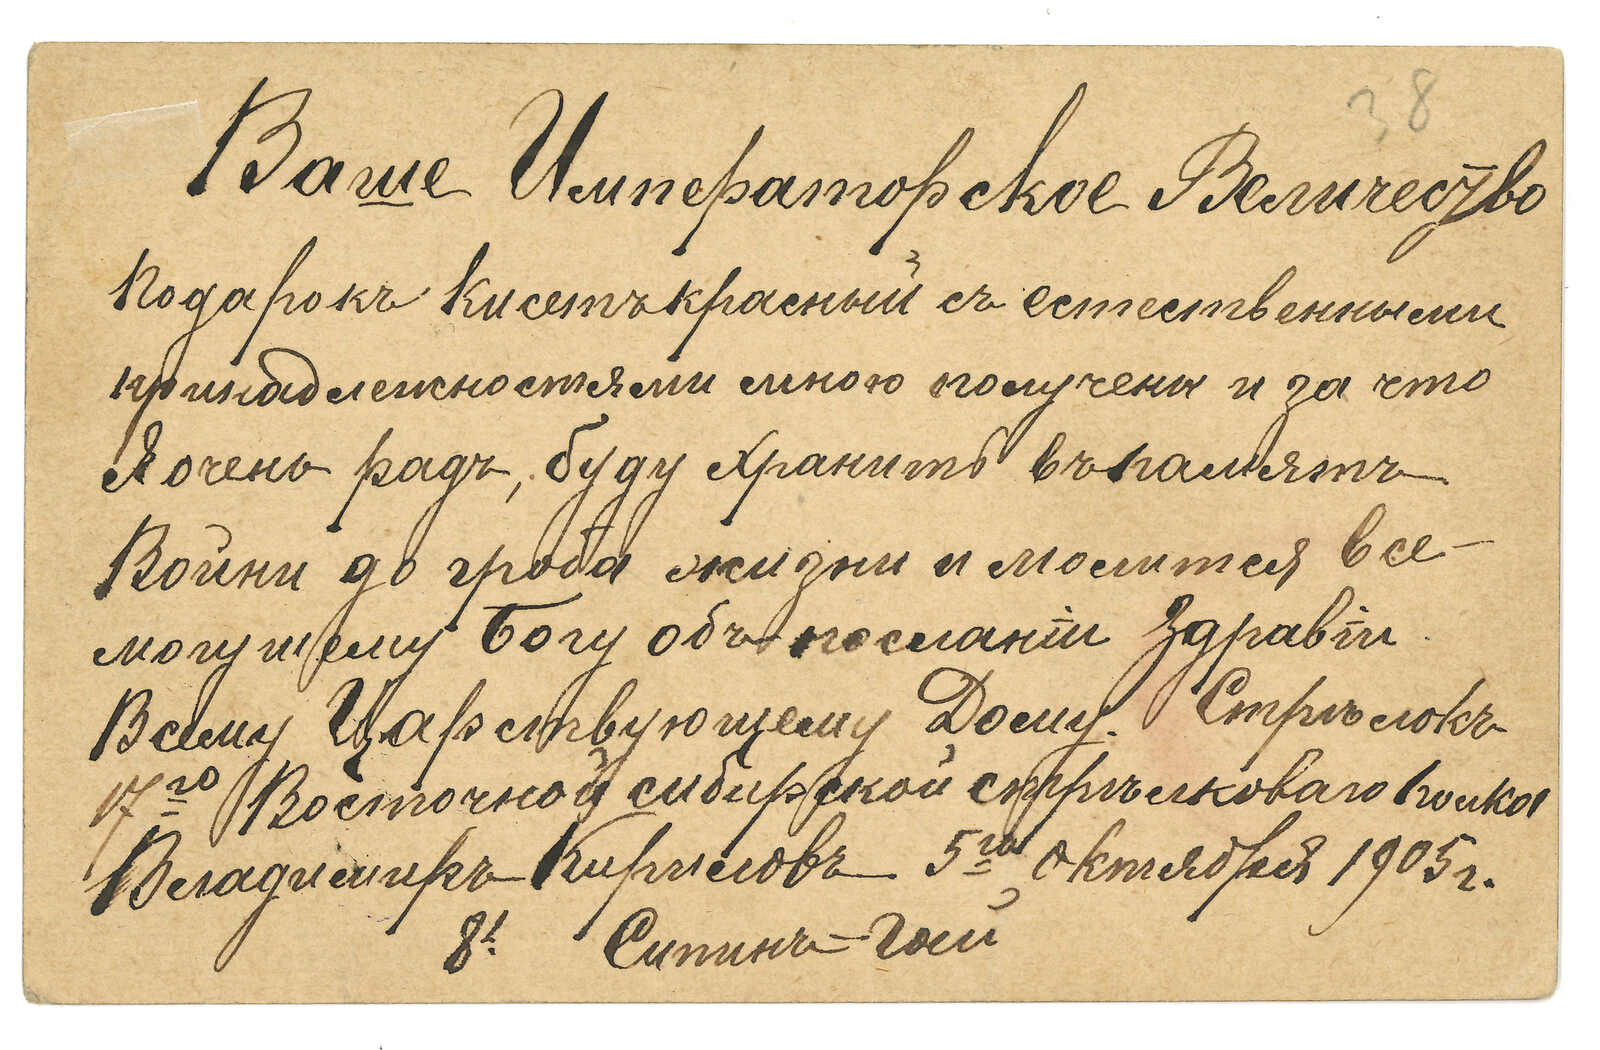 38
Ваше Императорское Величество
Подарокъ Кисетъ красный съ естественными
принадлежностями мною получены и за что
Я очень радъ, буду хранить въ памятъ
Войни до гроба жизни и молится Все-
могушему Богу объ посланіи Здравіи
Всему Царствующему Дому. Стрѣлокъ
17го Восточной сибирской стрѣлковаго полка
Владимиръ Кириловъ 5го октября 1905 г.
д. Сипинъ-Гой